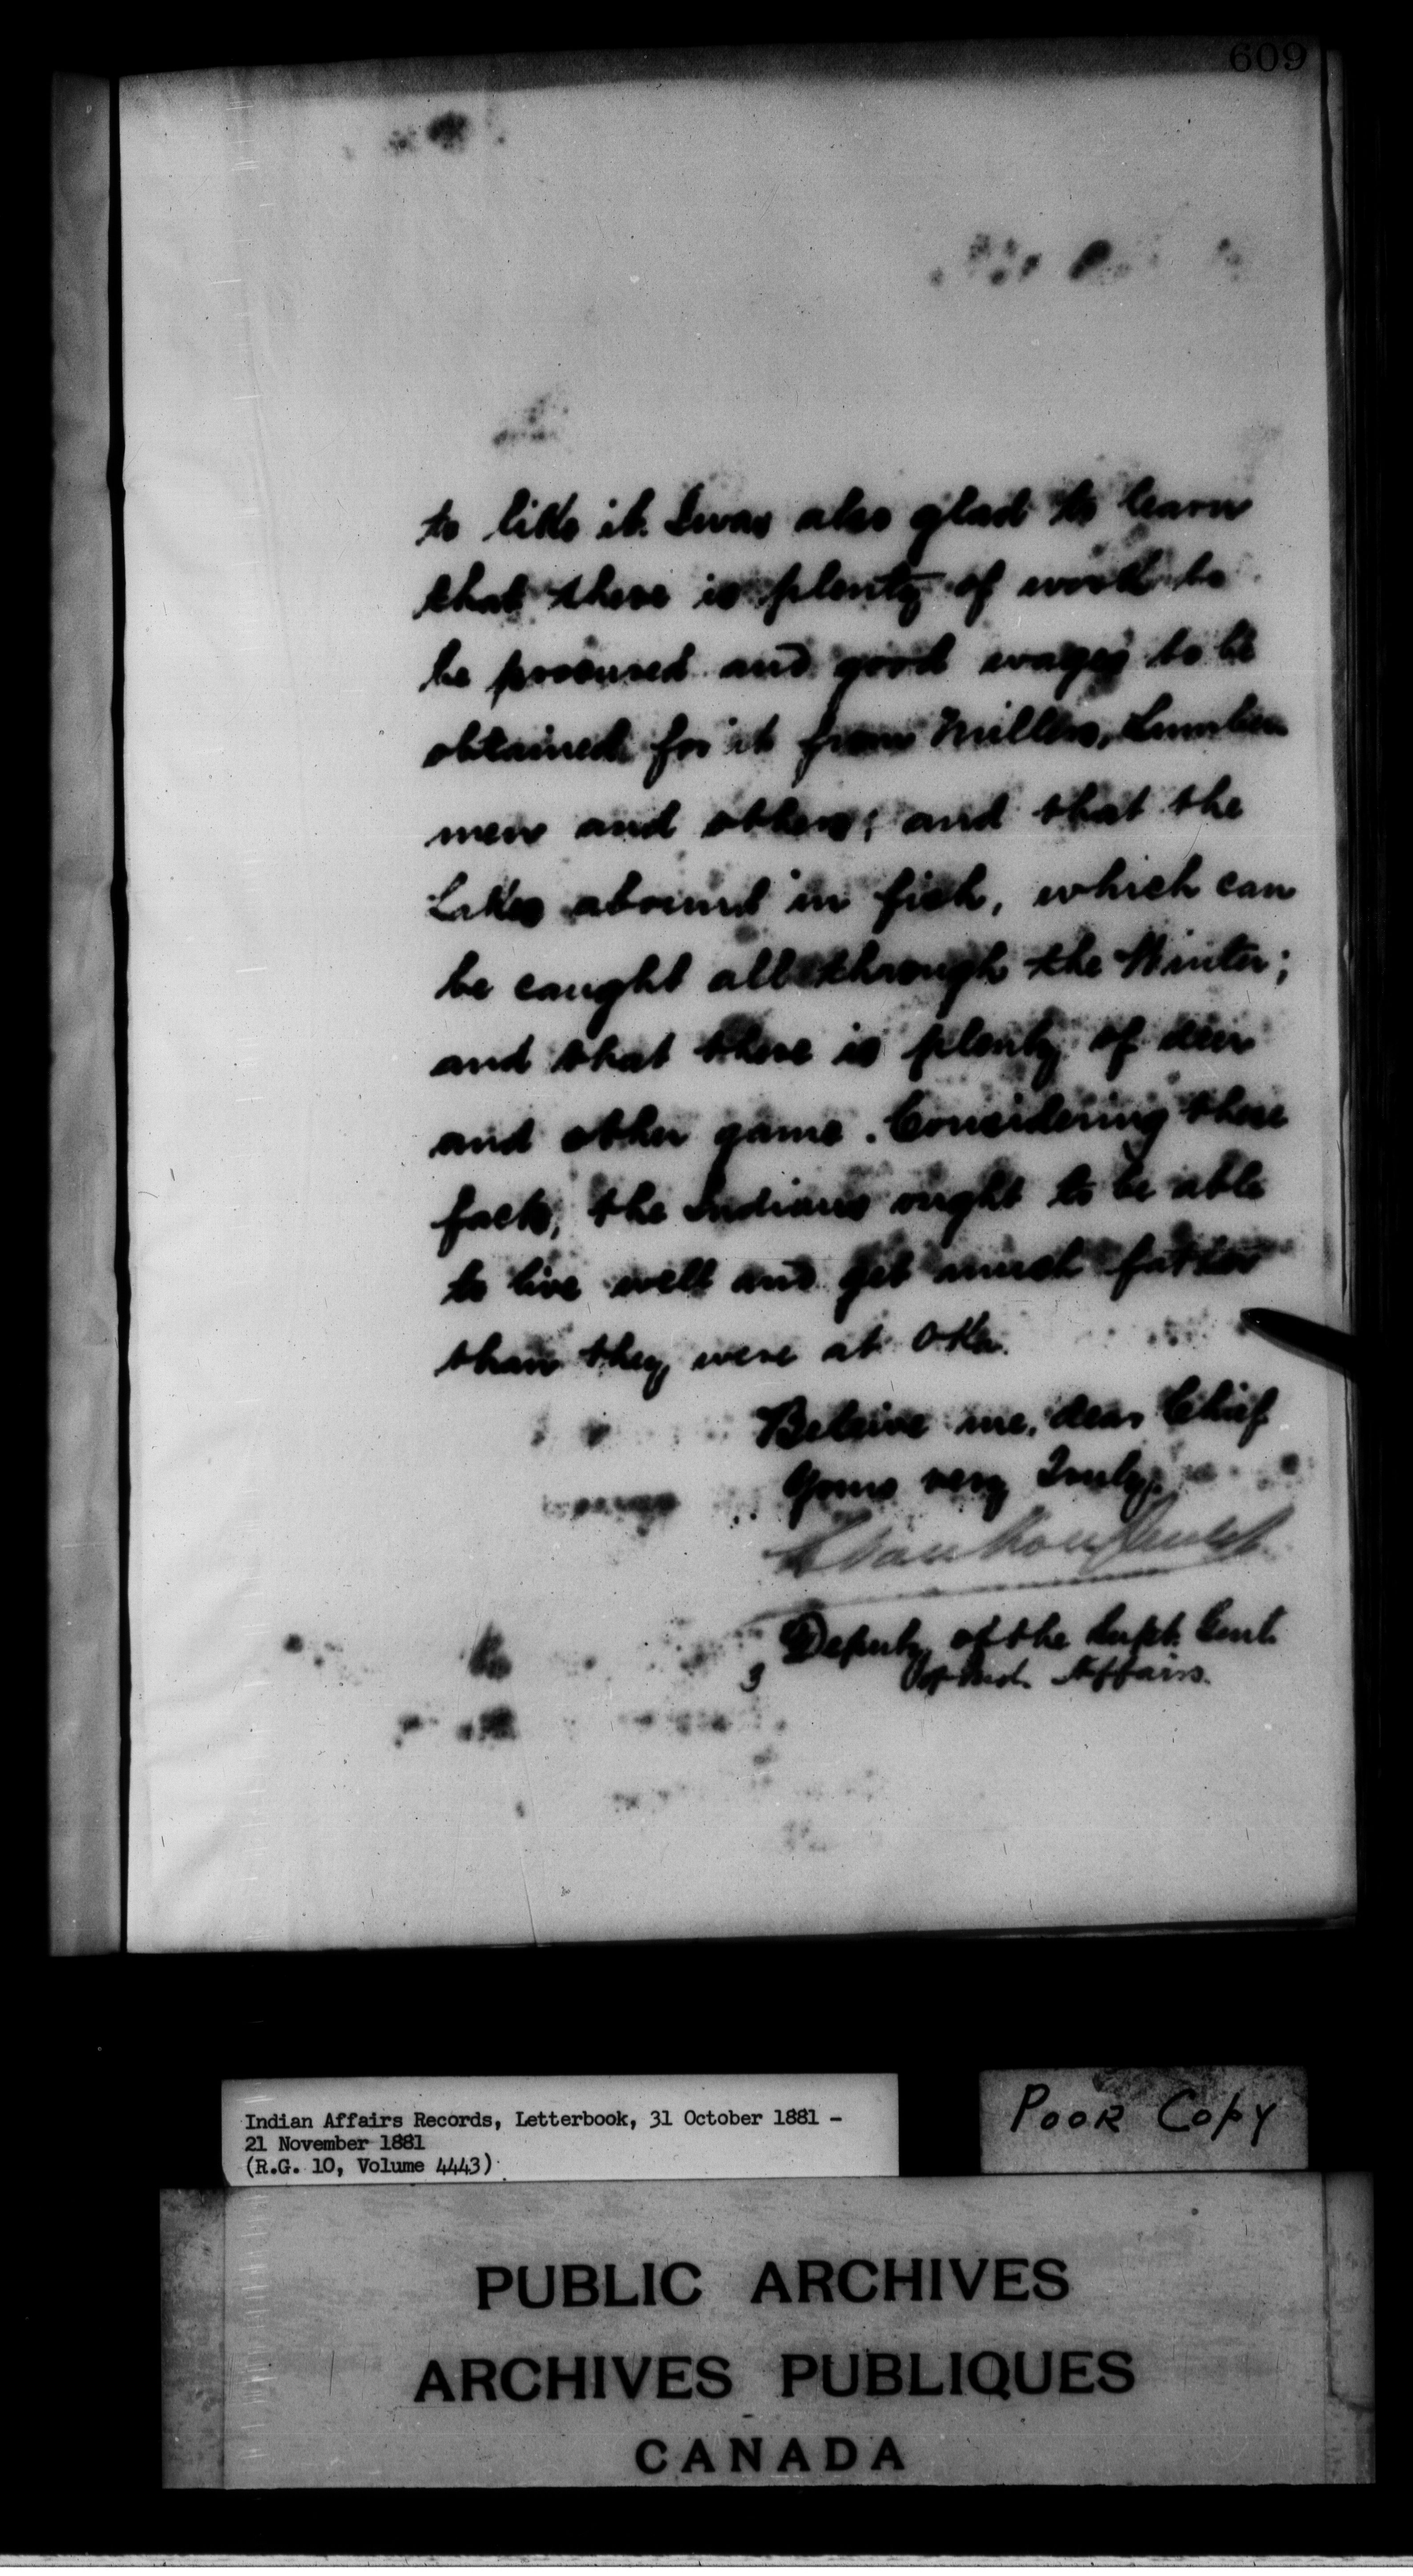 609
to like it. I was also glad to learn
that there is plenty of work to
be procured and good wages to be
obtained for it from Millers, Lumber
men and others; and that the
Lakes abound in fish, which can
be caught all through the Winter;
and that there is plenty of deer
and other game. Considering these
facts, the Indians ought to be able
to live well and get much fatter
than they were at Oka.
Beleive me, dear Chief
Yours very Truly,
L Vankoughnet
Deputy of the Supt. Genl.
of Ind. Affairs.
Indian Affairs Records, Letterbook, 31 October 1881 -
21 November 1881
(R.G. 10, Volume 4443)
POOR COPY
PUBLIC ARCHIVES
ARCHIVES PUBLIQUES
CANADA